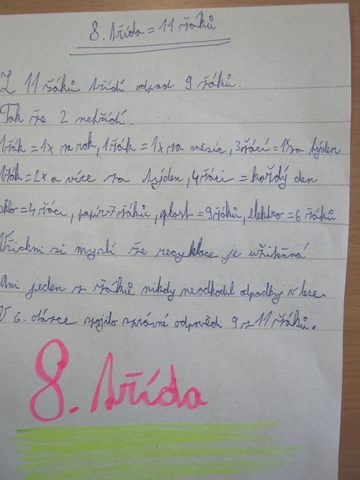 8. třída = 11 žáků
Z 11 žáků třídí odpad 9 žáků.
Tak že 2 netřídí.
1žák = 1x za rok, 1žák = 1x za měsíc, 3žáci = 1x za týden
1žák = 2x a více za týden, 4žáci = každý den
sklo = 4žáci, papír = 7žáků, plast = 9žáků, elektro = 6 žáků
Všichni si myslí že recyklace je užitečná
Ani jeden z žáků nikdy neodhodil odpadky v lese.
V 6. otázce spojilo správné odpovědi 9 z 11 žáků.
8. třída